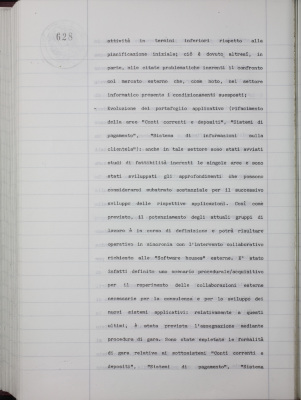 628
attività in termini inferiori rispetto alla
pianificazione iniziale; ciò è dovuto altresì, in
parte, alle citate problematiche inerenti il confronto
sul mercato esterno che, come noto, nel settore
informatico presenta i condizionamenti esposti;
Evoluzione del portafoglio applicativo (rifacimento
delle aree "Conti correnti e depositi", "Sistemi di
pagamento", "Sistema di informazioni sulla
clientela"): anche in tale settore sono stati avviati
studi di fattibilità inerenti le singole aree e sono
stati sviluppati gli approfondimenti che possono
considerarsi substrato sostanziale per il successivo
sviluppo delle rispettive applicazioni. Così come
previsto, il potenziamento degli attuali gruppi di
lavoro è in corso di definizione e potrà risultare
operativo in sincronia con l'intervento collaborativo
richiesto alle "Software houses" esterne. E' stato
infatti definito uno scenario procedurale/acquisitivo
per il reperimento delle collaborazioni esterne
necessarie per la consulenza e per lo sviluppo dei
nuovi sistemi applicativi: relativamente a questi
ultimi, è stata prevista l'assegnazione mediante
procedura di gara. Sono state espletate le formalità
di gara relative ai sottosistemi "Conti correnti e
depositi", "Sistemi di pagamento", "Sistema